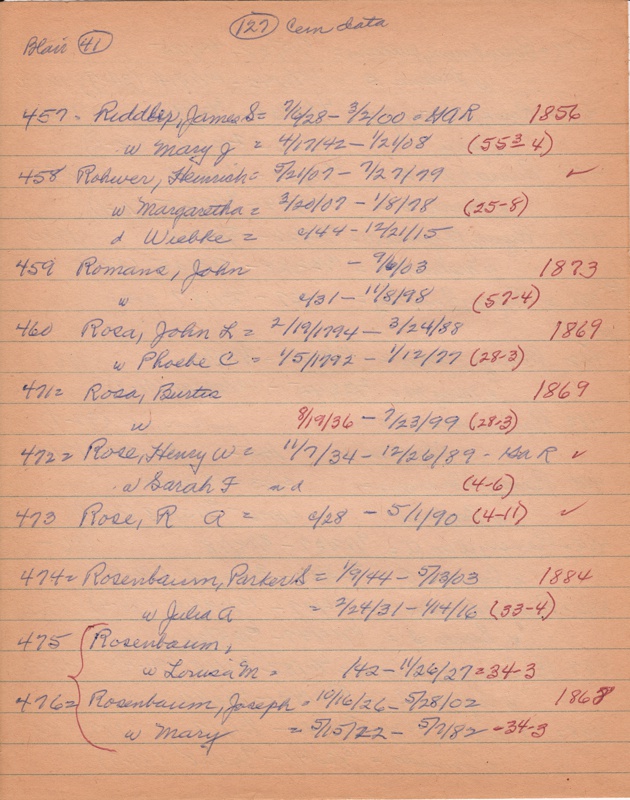 Blair 41 127 Cem data
457- Riddler, James S= 7/6/28 - 3/2/00 = GAR 1856
w Mary J = 4/17/42 - 1/21/08 (55 3-4)
458 Rohwer, Heinrich= 5/21/07 - 7/27/79 ✓
w Margaretha = 3/20/07 - 1/8/78 (25-8)
d Wiebke = c/44 - 12/21/15
459 Romans, John - 9/6/03 1873
w c/31 - 11/8/98 (57-4)
460 Rosa, John L = 2/19/1794 - 3/24/88 1869
w Phoebe C = 1/5/1792 - 1/12/77 (28-3)
471= Rosa, Burtis 1869
w 8/19/36 - 7/23/99 (28-3)
472= Rose, Henry W = 11/7/34 - 12/26/89 - GAR ✓
w Sarah F nd (4-6)
473 Rose, R A = c/28 - 5/1/90 (4-11) ✓
474= Rosenbaum, Parker S = 1/9/44 - 5/13/03 1884
w Julia A = 2/24/31 - 1/14/16 (33-4)
475 Rosenbaum,
w Lorusa M = 142 - 11/26/27 = 34-3
476= Rosenbaum, Joseph = 10/16/26 - 5/28/02 1868
w Mary = 5/15/22 - 5/7/82 = 34-3